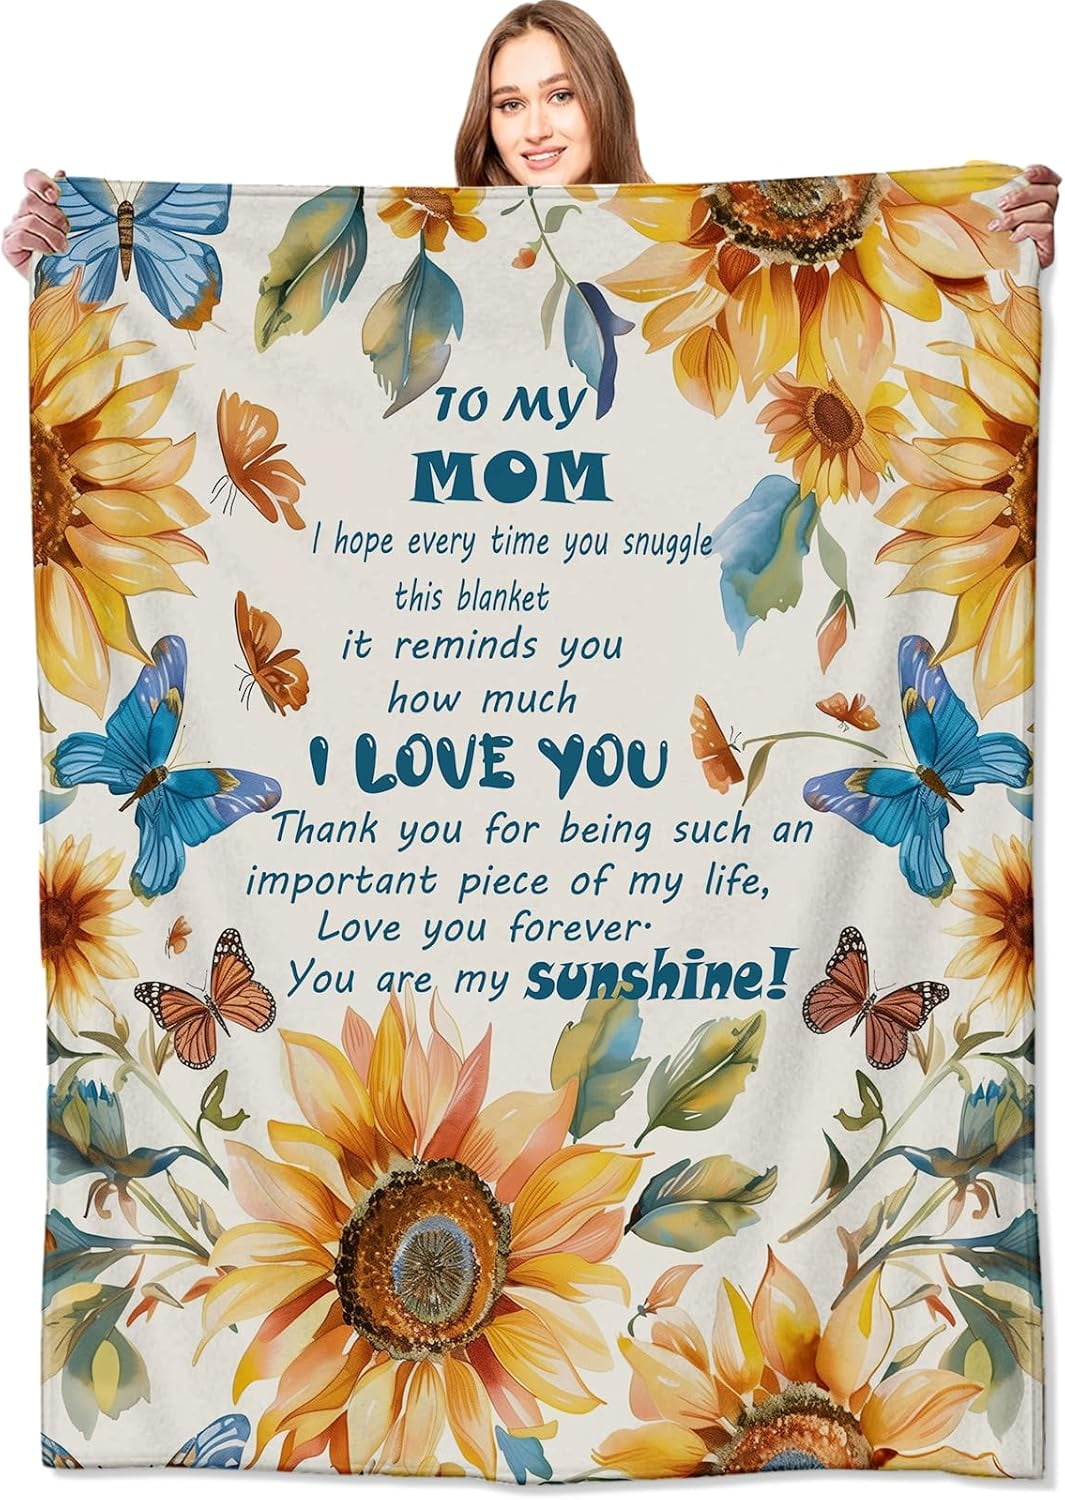 TO MY
MOM
I hope every time you snuggle
this blanket
it reminds you
how much
I LOVE YOU
Thank you for being such an
important piece of my life,
Love you forever.
You are my sunshine!